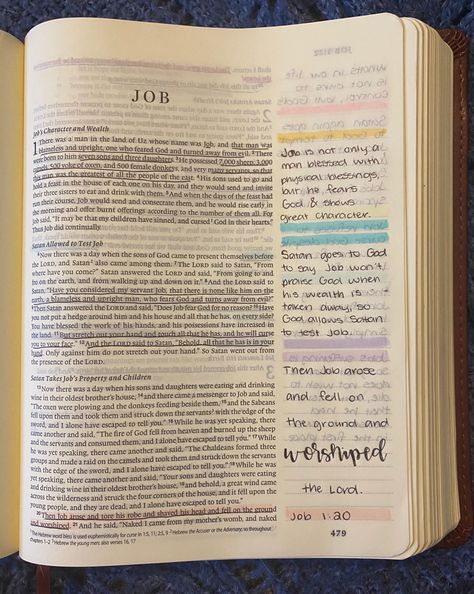 JOB
Job's Character and Wealth
1 There was a man in the land of Uz whose name was Job, and that man was
blameless and upright, one who feared God and turned away from evil. 2 There
were born to him seven sons and three daughters. 3 He possessed 7,000 sheep, 3,000
camels, 500 yoke of oxen, and 500 female donkeys, and very many servants, so that
this man was the greatest of all the people of the east. 4 His sons used to go and
hold a feast in the house of each one on his day, and they would send and invite
their three sisters to eat and drink with them. 5 And when the days of the feast had
run their course, Job would send and consecrate them, and he would rise early in
the morning and offer burnt offerings according to the number of them all. For
Job said, "It may be that my children have sinned, and cursed God in their hearts."
Thus Job did continually.
Satan Allowed to Test Job
6 Now there was a day when the sons of God came to present themselves before
the LORD, and Satan also came among them. 7 The LORD said to Satan, "From
where have you come?" Satan answered the LORD and said, "From going to and
fro on the earth, and from walking up and down on it." 8 And the LORD said to
Satan, "Have you considered my servant Job, that there is none like him on the
earth, a blameless and upright man, who fears God and turns away from evil?"
9 Then Satan answered the LORD and said, "Does Job fear God for no reason? 10 Have
you not put a hedge around him and his house and all that he has, on every side?
You have blessed the work of his hands, and his possessions have increased in
the land. 11 But stretch out your hand and touch all that he has, and he will curse
you to your face." 12 And the LORD said to Satan, "Behold, all that he has is in your
hand. Only against him do not stretch out your hand." So Satan went out from
the presence of the LORD.
Satan Takes Job's Property and Children
13 Now there was a day when his sons and daughters were eating and drinking
wine in their oldest brother's house, 14 and there came a messenger to Job and said,
"The oxen were plowing and the donkeys feeding beside them, 15 and the Sabeans
fell upon them and took them and struck down the servants with the edge of the
sword, and I alone have escaped to tell you." 16 While he was yet speaking, there
came another and said, "The fire of God fell from heaven and burned up the sheep
and the servants and consumed them, and I alone have escaped to tell you." 17 While
he was yet speaking, there came another and said, "The Chaldeans formed three
groups and made a raid on the camels and took them and struck down the servants
with the edge of the sword, and I alone have escaped to tell you." 18 While he was
yet speaking, there came another and said, "Your sons and daughters were eating
and drinking wine in their oldest brother's house, 19 and behold, a great wind came
across the wilderness and struck the four corners of the house, and it fell upon the
young people, and they are dead, and I alone have escaped to tell you."
20 Then Job arose and tore his robe and shaved his head and fell on the ground
and worshiped. 21 And he said, "Naked I came from my mother's womb, and naked
1 The Hebrew word bless is used euphemistically for curse in 1:5, 11; 2:5, 9 2 Hebrew the Accuser or the Adversary; so throughout
chapters 1–2 3 Hebrew the young men; also verses 16, 17
Job is not only a
man blessed with
physical blessings,
but he fears
God & shows
great character.
Satan goes to God
to say Job won't
praise God when
his wealth is
taken away, so
God allows Satan
to test Job.
Then Job arose
and fell on
the ground and
worshiped
the Lord.
Job 1:20
479